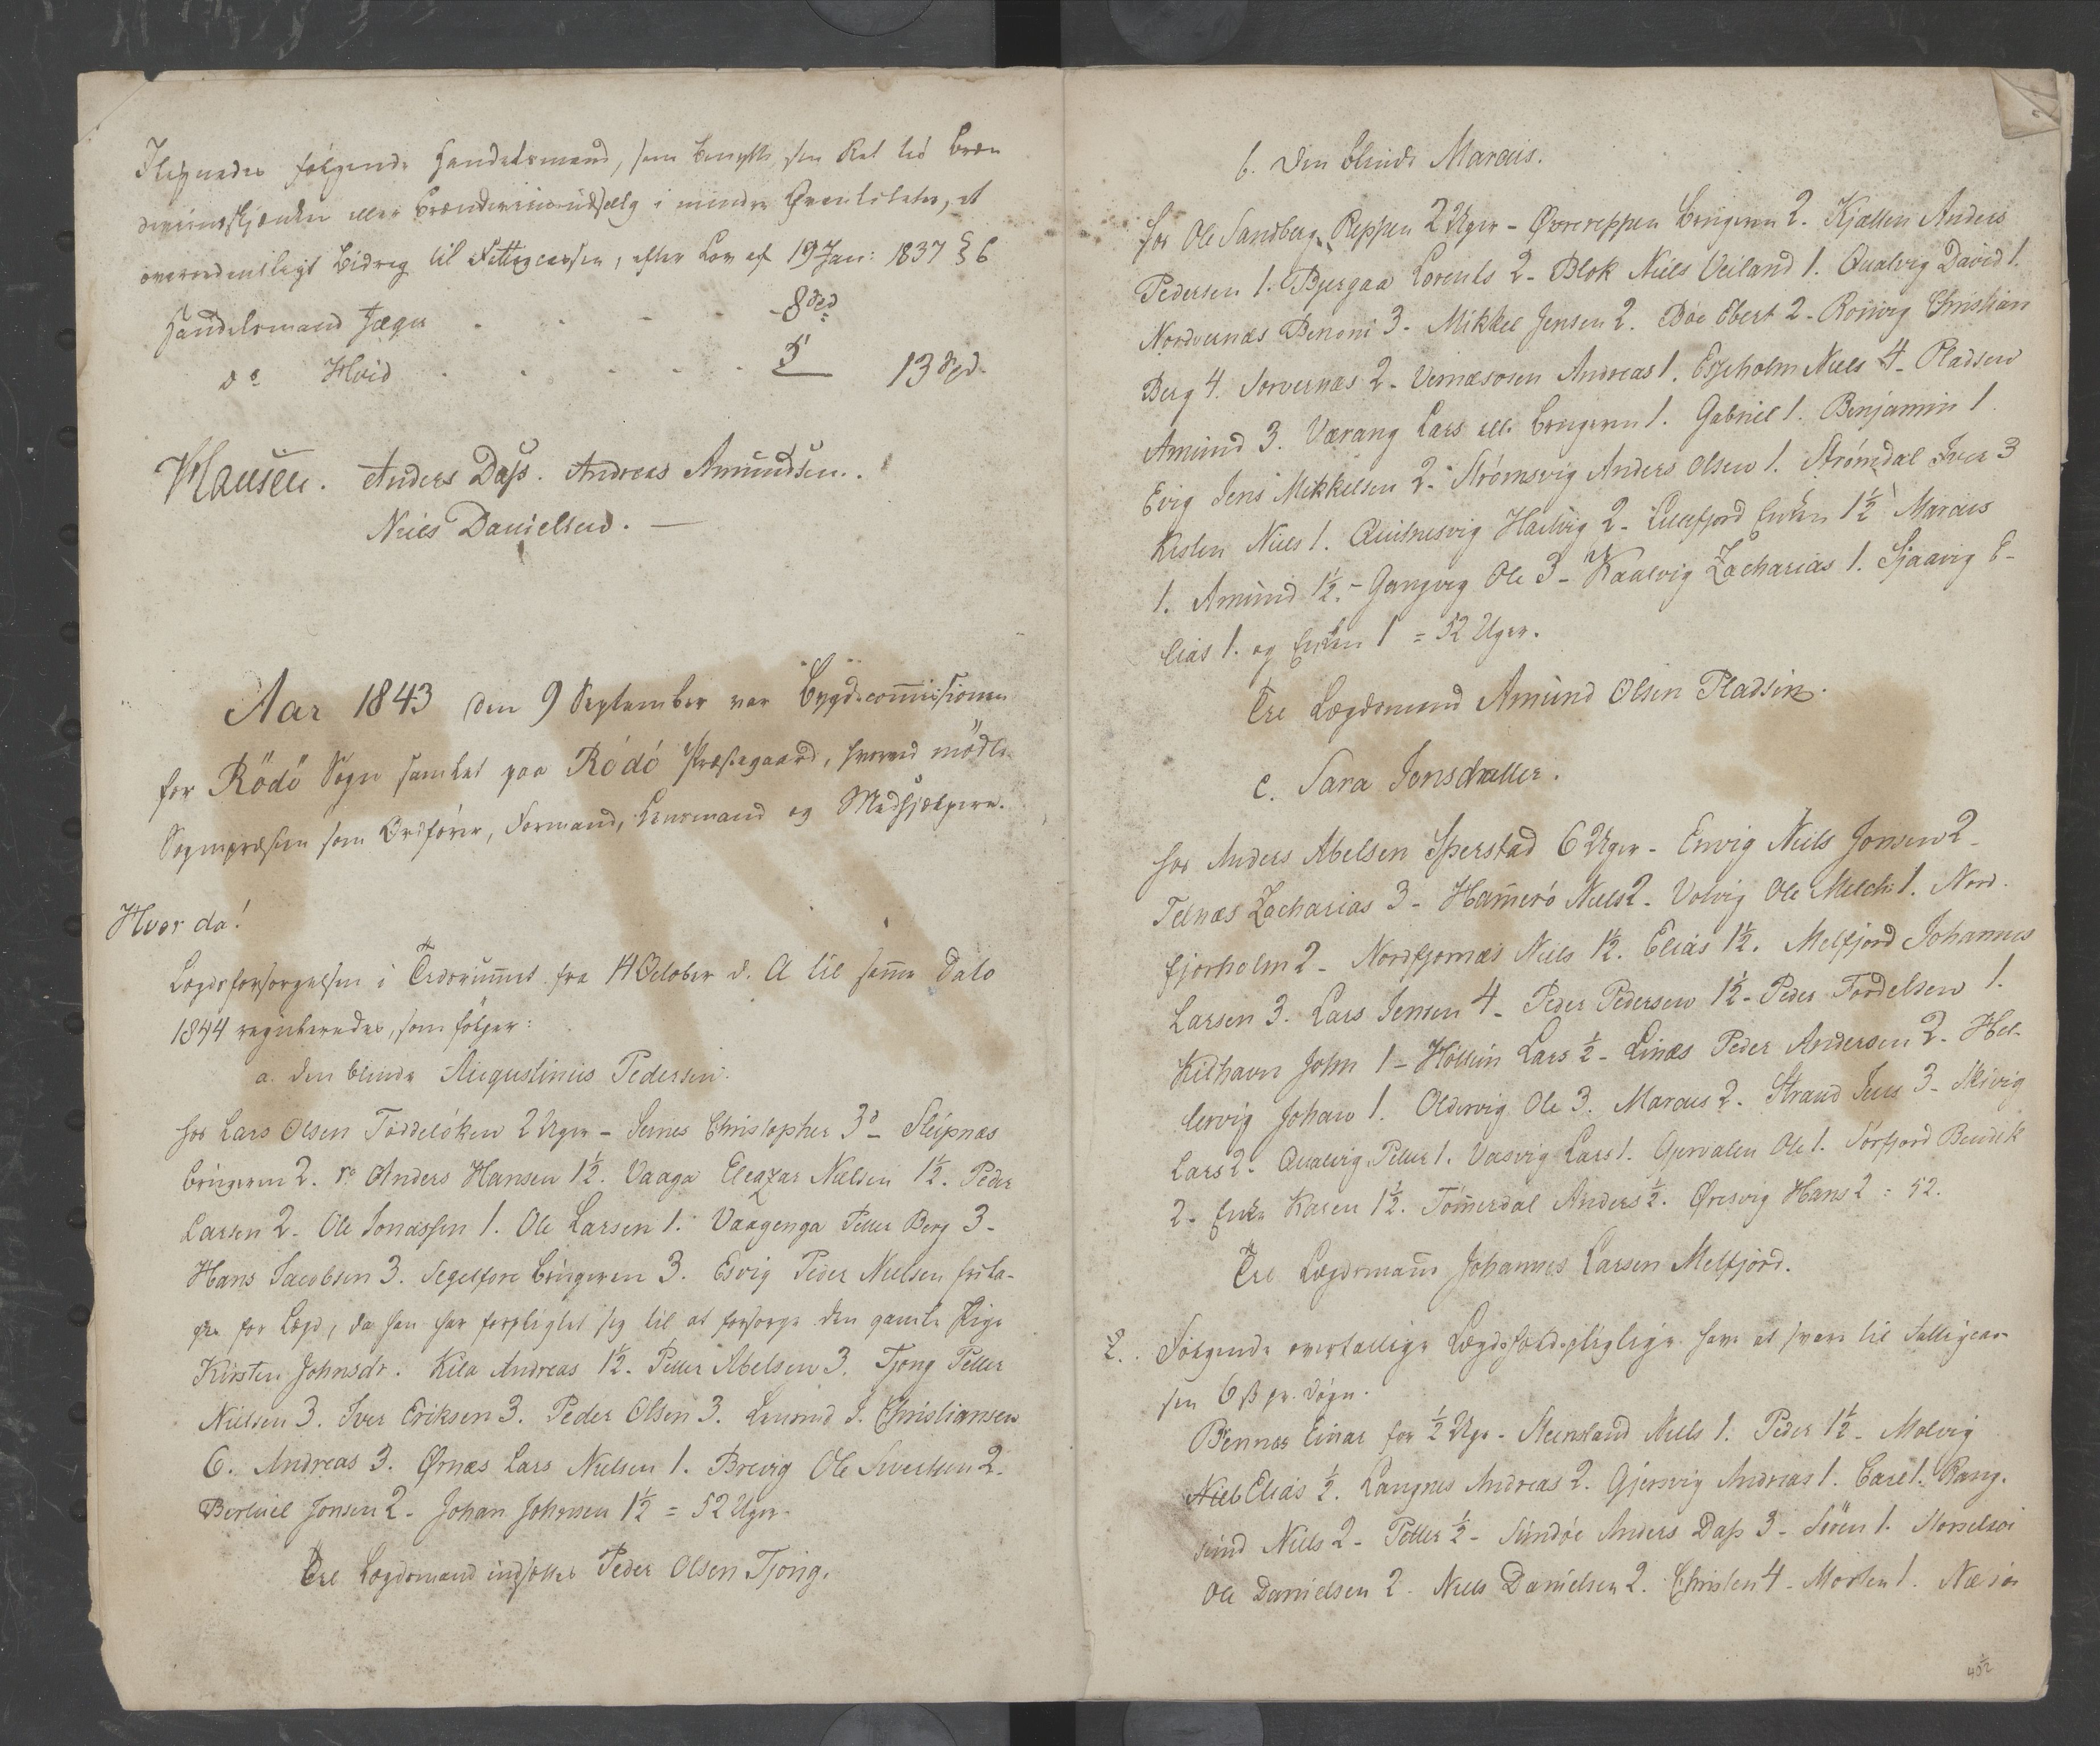 Ilignedes følgende Handelsmænd, som benytte sin Ret til Bræn
deviinsskjænken eller Brændeviinsudsalg i mindre Qvantiteter, et
overordentligt Bidrag til Fattigcassen, efter Lov af 19 Jan: 1837 § 6
Handelsmand Jæger - - - - 8 Spd
do Hvid - - - - - 5 13 Spd.
VHansen. Anders Dass. Andreas Amundsen.
Niels Danielsen. —
Aar 1843 den 9 September var Bygdecommissionen
for Rödö Sogn samlet paa Rödö Præstegaard, hvorved mödte
Sognepræsten som Ordförer, Formand, Lensmand og Medhjælpere.
Hvor da!
Lægdsforsörgelsen i Tidsrummet fra 14 October d. A til samme Dato
1844 reguleredes, som fölger:
a. den blinde Augustinus Pedersen.
hos Lars Olsen Töddelöken 2 Uger - Sernes Christopher 3 d - Sleipnæs
brugeren 2. Anders Hansen 1½. Vaaga Eleazar Nielsen 1½. Peder
Larsen 2. Ole Jonassen 1. Ole Larsen 1. Vaagenga Petter Berg 3 -
Hans Jacobsen 3. Segelfore brugeren 3. Esvig Peder Nielsen frita-
ges for Lægd, da han har forpligtet sig til at forsörge den gamle Pige
Kirsten Johnsdr. Kila Andreas 1½. Petter Abelsen 3. Tjong Petter
Nielsen 3. Iver Eriksen 3. Peder Olsen 3. Lensmd J. Christiansen
6. Andreas 3. Ørnæs Lars Nielsen 1. Brevig Ole Sivertsen 2.
Bertuel Jonsen 2 - Johan Johnsen 1½ = 52 Uger.
Til Lægdsmand indsættes Peder Olsen Tjong.
b. Den blinde Marcus.
hos Ole Sandberg, Reppen 2 Uger - Øvrereppen brugeren 2. Kjælten Anders
Pedersen 1. Bjergaa Lorents 2 - Blok Niels Veiland 1. Qualvig David 1.
Nordvernæs Benoni 3 - Mikkel Jensen 2. Böe Ebert 2 - Rönvig Christian
Berg 4. Sorvernæs 2 - Vernæsosen Andreas 1. Espeholm Niels 4 - Pladsen
Amund 3. Værang Lars elle brugeren 1. Gabriel 1. Benjamin 1.
Evig Jens Mikkelsen 2. Strömsvig Anders Olsen 1. Strömdal Iver 3
Kisten Niels 1. Quitnesvig Hartvig 2 - Lillefjord Enken 1½ Marcus
1. Amund 1½ - Gangveg Ole 3 - Kaalvig Zacharias 1. Sjaavig E-
lias 1. og Enken 1 = 52 Uger.
Til Lægdsmand Amund Olsen Pladsen.
c. Sara Jonsdatter.
hos Anders Abelsen Sperstad 6 Uger - Envig Niels Jonsen 2 -
Telnæs Zacharias 3 - Hamerö Niels 2 - Volvig Ole Melch: 1. Nord-
fjorholm 2 - Nordfjornæs Niels 1½. Elias 1½. Melfjord Johannes
Larsen 3. Lars Jensen 4 - Peder Pedersen 1½ - Peder Tordelsen 1.
Kilhavn John 1 - Höllun Lars ½ - Linæs Peder Andersen 2 - Hel-
lervig Johan 1. Oldervig Ole 3. Marcus 2. Strand Jens 3 - Skivig
Lars 2. Qualvig Petter 1. Vasvig Lars 1. Gjervalen Ole 1. Sörfjord Bendik
2. Enke Karen 1½. Tömerdal Anders ½. Øresvig Hans 2 = 52.
Til Lægdsmand Johannes Larsen Melfjord.
2. Fölgende overtallige Lægdsholdspligtige have at svare til Fattigcas-
sen 6 ß pr. Dögn.
Bennæs Einar for ½ Uge - Steensland Niels 1. Peder 1½ - Molvig
Niels Elias ½. Langnes Andreas 2. Gjersvig Andreas 1. Carel 1. Rang-
sund Niels 2 - Petter ½ - Sundöe Anders Dass 3 - Sören 1. Storselsöi
Ole Danielsen 2. Niels Danielsen 2. Christen 4 - Morten 1. Næsöi
40½